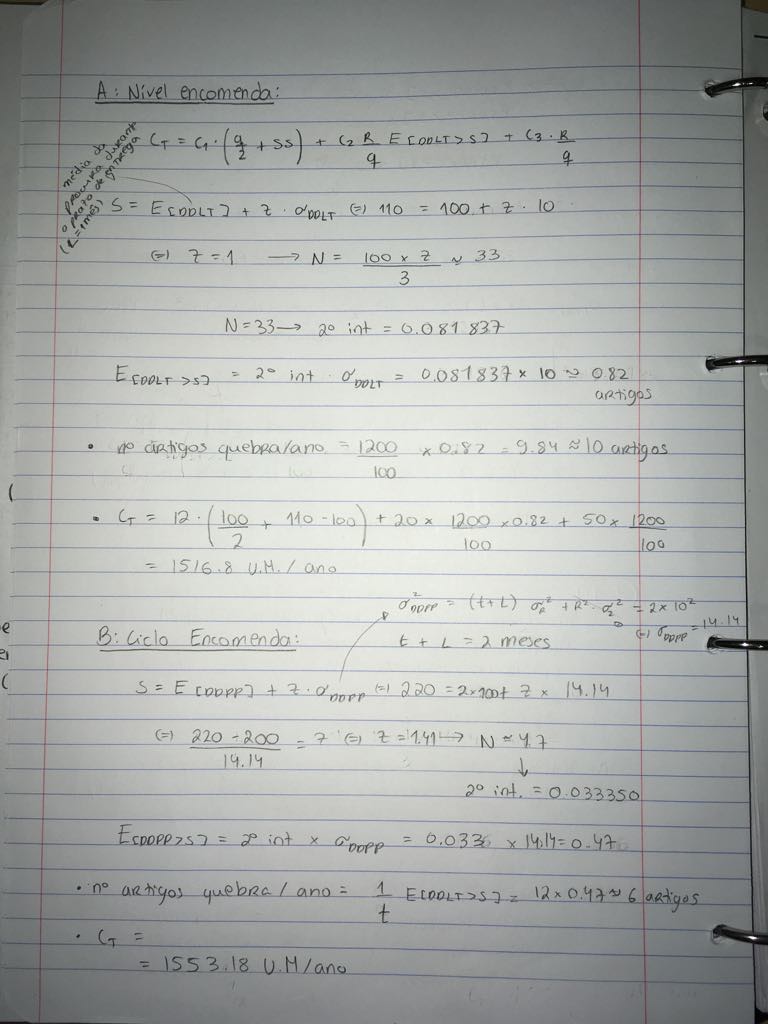 A: Nível encomenda:
C_T = C_1 · (q/2 + SS) + C_2 R/q E[DDLT>S] + C_3 · R/q
média da procura durant o prazo de entrega (L=1mês)
S = E[DDLT] + Z · σ_DDLT (=) 110 = 100 + Z · 10
(=) Z = 1 → N = (100 × Z)/3 ≈ 33
N = 33 → 2º int = 0.081837
E[DDLT>S] = 2º int · σ_DDLT = 0.081837 × 10 ≈ 0.82 artigos
• nº artigos quebra/ano = 1200/100 × 0.82 = 9.84 ≈ 10 artigos
• C_T = 12 · (100/2 + 110-100) + 20 × 1200/100 × 0.82 + 50 × 1200/100
= 1516.8 U.M. / ano
σ²_DDPP = (t+L) σ_R² + R² · σ_L² = 2 × 10²
(=) σ_DDPP = 14.14
B: Ciclo Encomenda:
t + L = 2 meses
S = E[DDPP] + Z · σ_DDPP (=) 220 = 2×100 + Z × 14.14
(=) (220 - 200)/14.14 = Z (=) Z = 1.41 → N ≈ 47
2º int. = 0.033350
E[DDPP>S] = 2º int × σ_DDPP = 0.033 × 14.14 = 0.47
• nº artigos quebra / ano = 1/t E[DDLT>S] = 12 × 0.47 ≈ 6 artigos
• C_T =
= 1553.18 U.M/ano